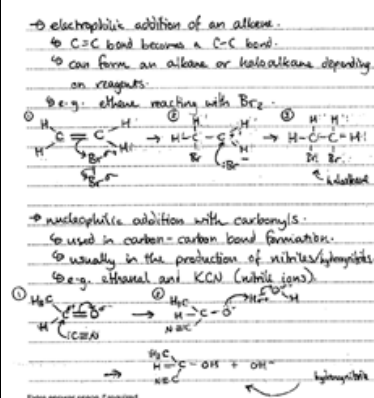 → electrophilic addition of an alkene.
↳ C=C bond becomes a C-C bond.
↳ can form an alkane or haloalkane depending
on reagents.
↳ e.g. ethene reacting with Br2
① ② ③
H H H H H H
C = C → H-C-C → H-C-C-H
H H Br H Br Br
Br :Br
Br haloalkane
→ nucleophilic addition with carbonyls.
↳ used in carbon-carbon bond formation.
↳ usually in the production of nitriles/hydroxynitriles
↳ e.g. ethanal and KCN (nitrile ions).
① ②
H3C H3C H O H
C = O → H-C-O
H :C≡N N≡C
H3C
→ H-C-OH + OH-
N≡C hydroxynitrile